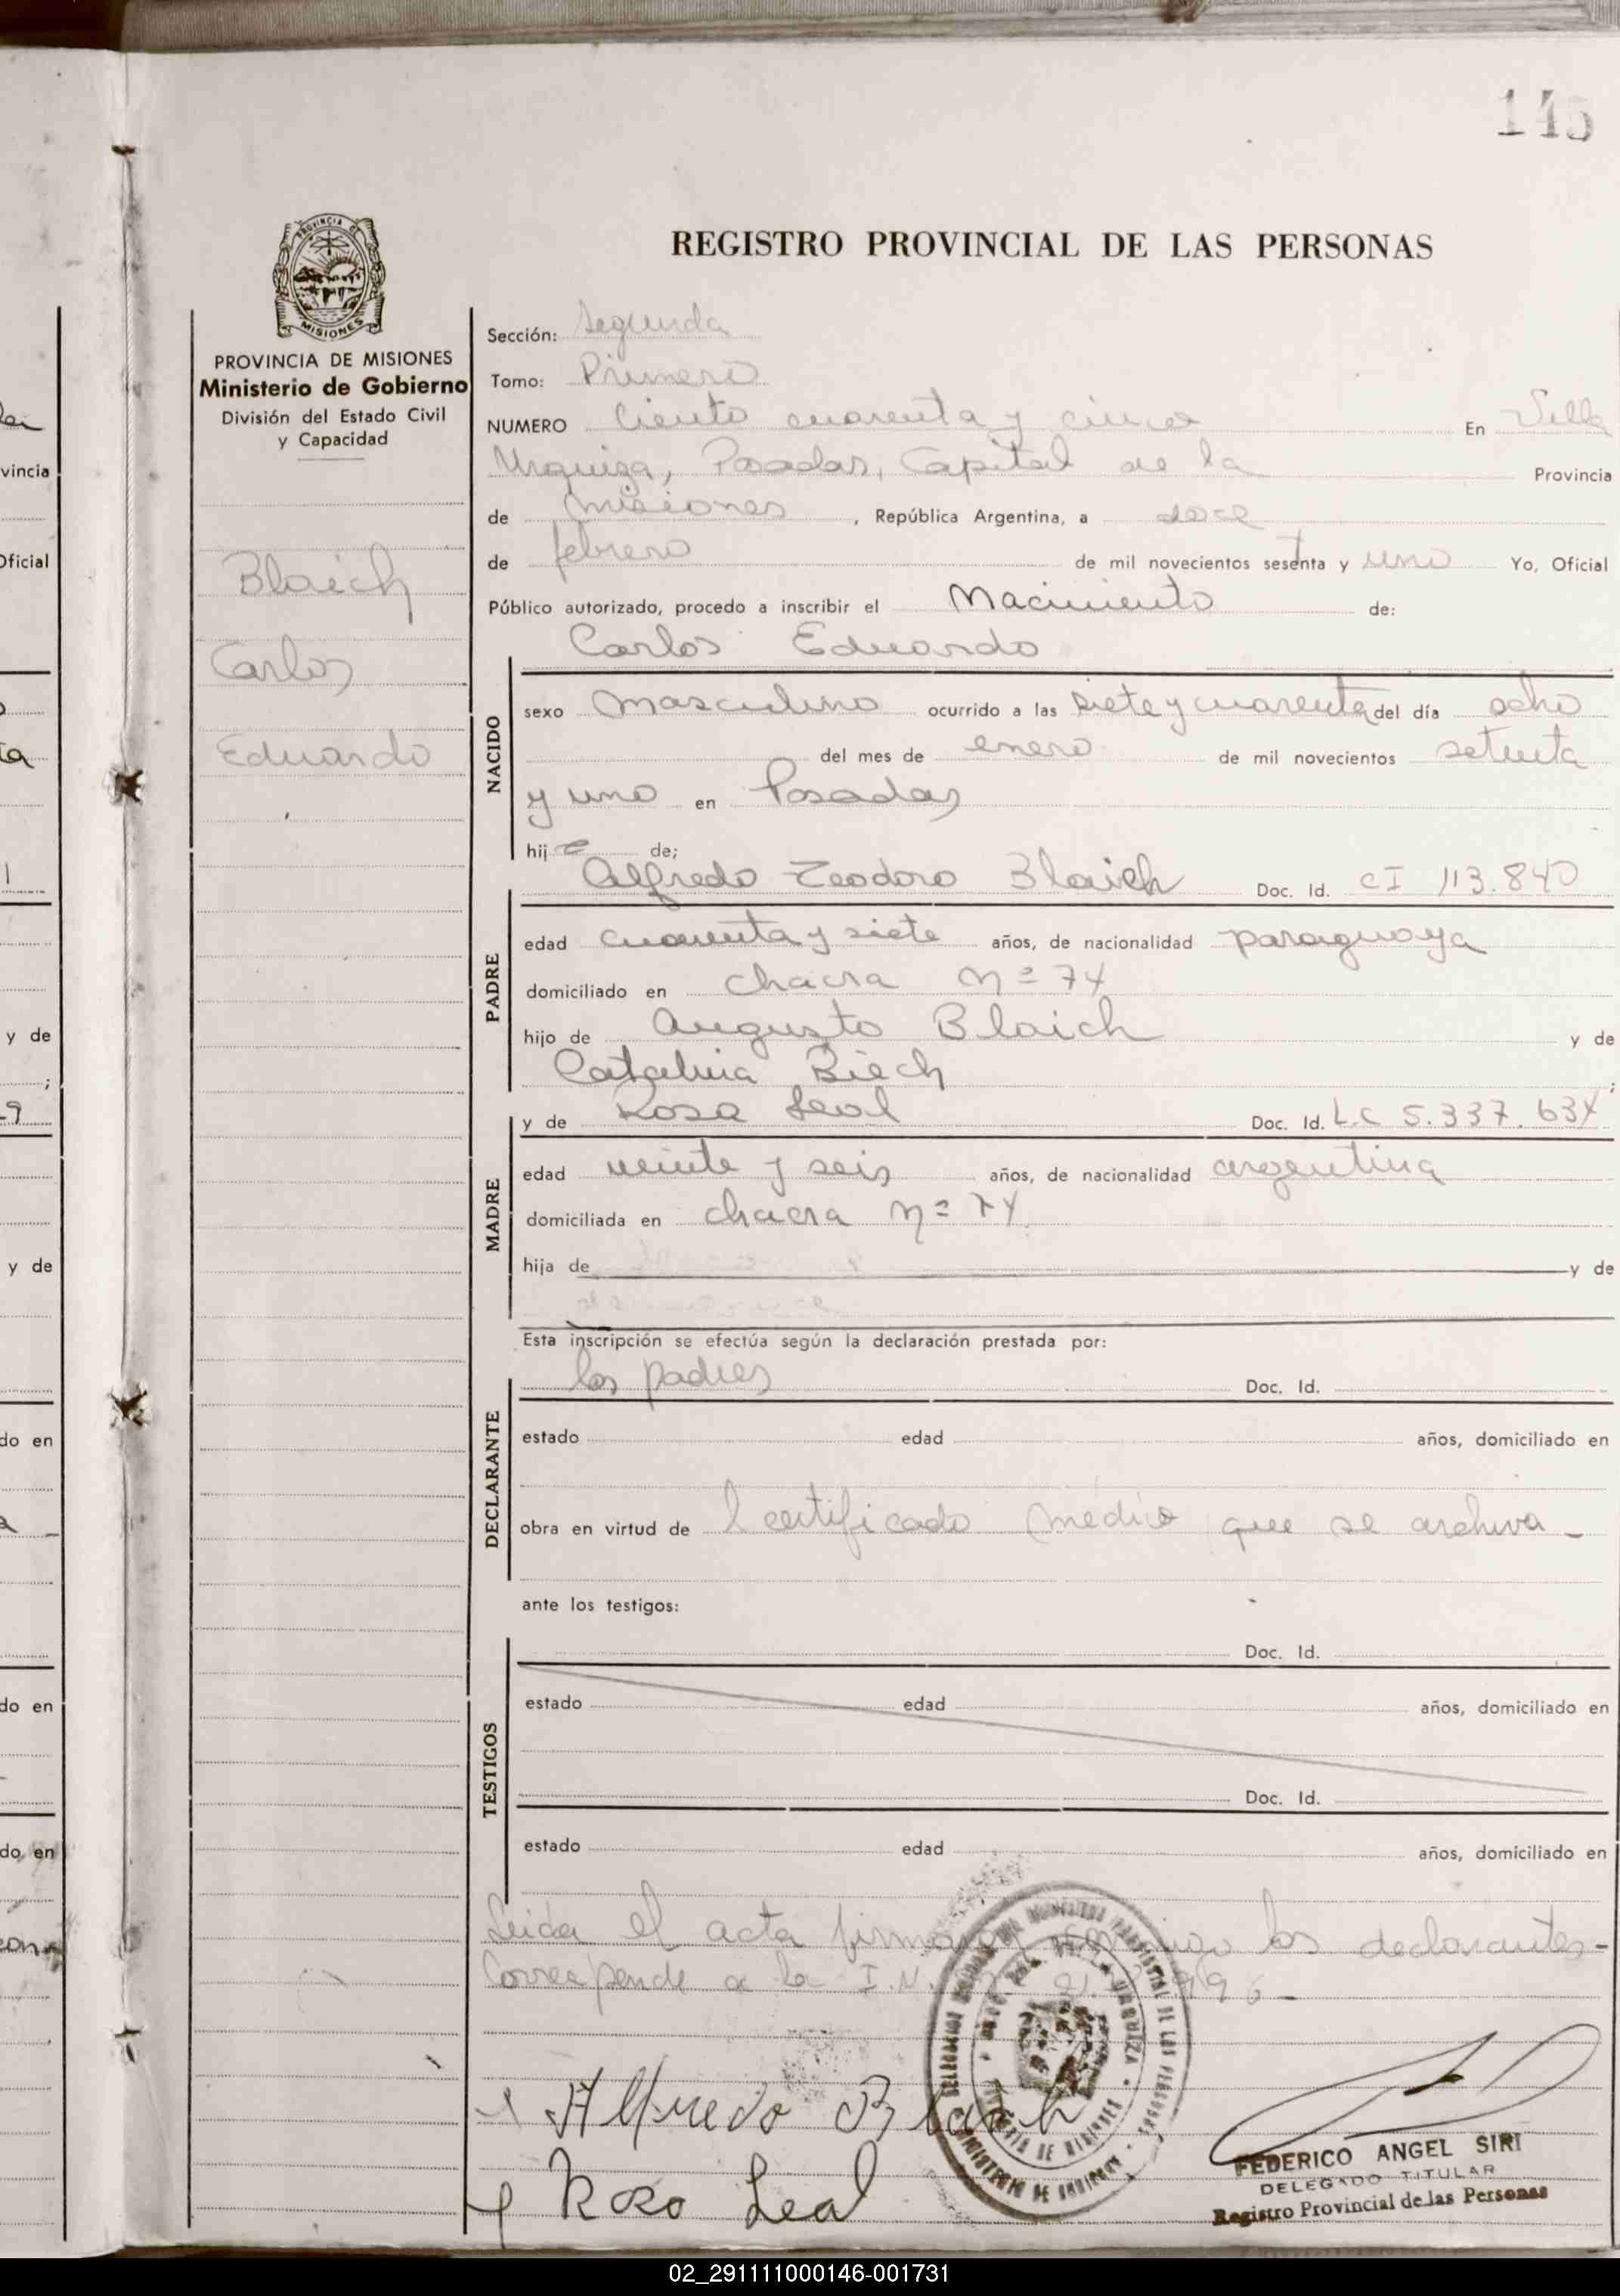 145
REGISTRO PROVINCIAL DE LAS PERSONAS
PROVINCIA DE MISIONES
Ministerio de Gobierno
División del Estado Civil
y Capacidad
Blaich
Carlos
Eduardo
Sección: Segunda
Tomo: Primero
NUMERO Ciento cuarenta y cinco En Villa
Urquiza, Posadas, Capital de la Provincia
de Misiones, República Argentina, a doce
de febrero de mil novecientos sesenta y uno Yo, Oficial
Público autorizado, procedo a inscribir el Nacimiento de:
Carlos Eduardo
NACIDO
sexo Masculino ocurrido a las siete y cuarenta del día ocho
del mes de enero de mil novecientos setenta
y uno en Posadas
hijo de;
Alfredo Teodoro Blaich Doc. Id. CI 113.840
PADRE
edad cuarenta y siete años, de nacionalidad paraguaya
domiciliado en chacra nº 74
hijo de Augusto Blaich y de
Catalina Biech;
MADRE
y de Rosa Leal Doc. Id. L.C 5.337.634
edad veinte y seis años, de nacionalidad argentina
domiciliada en chacra nº 74
hija de y de
Esta inscripción se efectúa según la declaración prestada por:
los padres Doc. Id.
DECLARANTE
estado edad años, domiciliado en
obra en virtud de l certificado médico que se archiva -
ante los testigos:
TESTIGOS
Doc. Id.
estado edad años, domiciliado en
Doc. Id.
estado edad años, domiciliado en
Leida el acta firman conmigo los declarantes-
Corresponde a la I.N.
Alfredo Blaich
Rosa Leal
FEDERICO ANGEL SIRI
DELEGADO TITULAR
Registro Provincial de las Personas
02_291111000146-001731